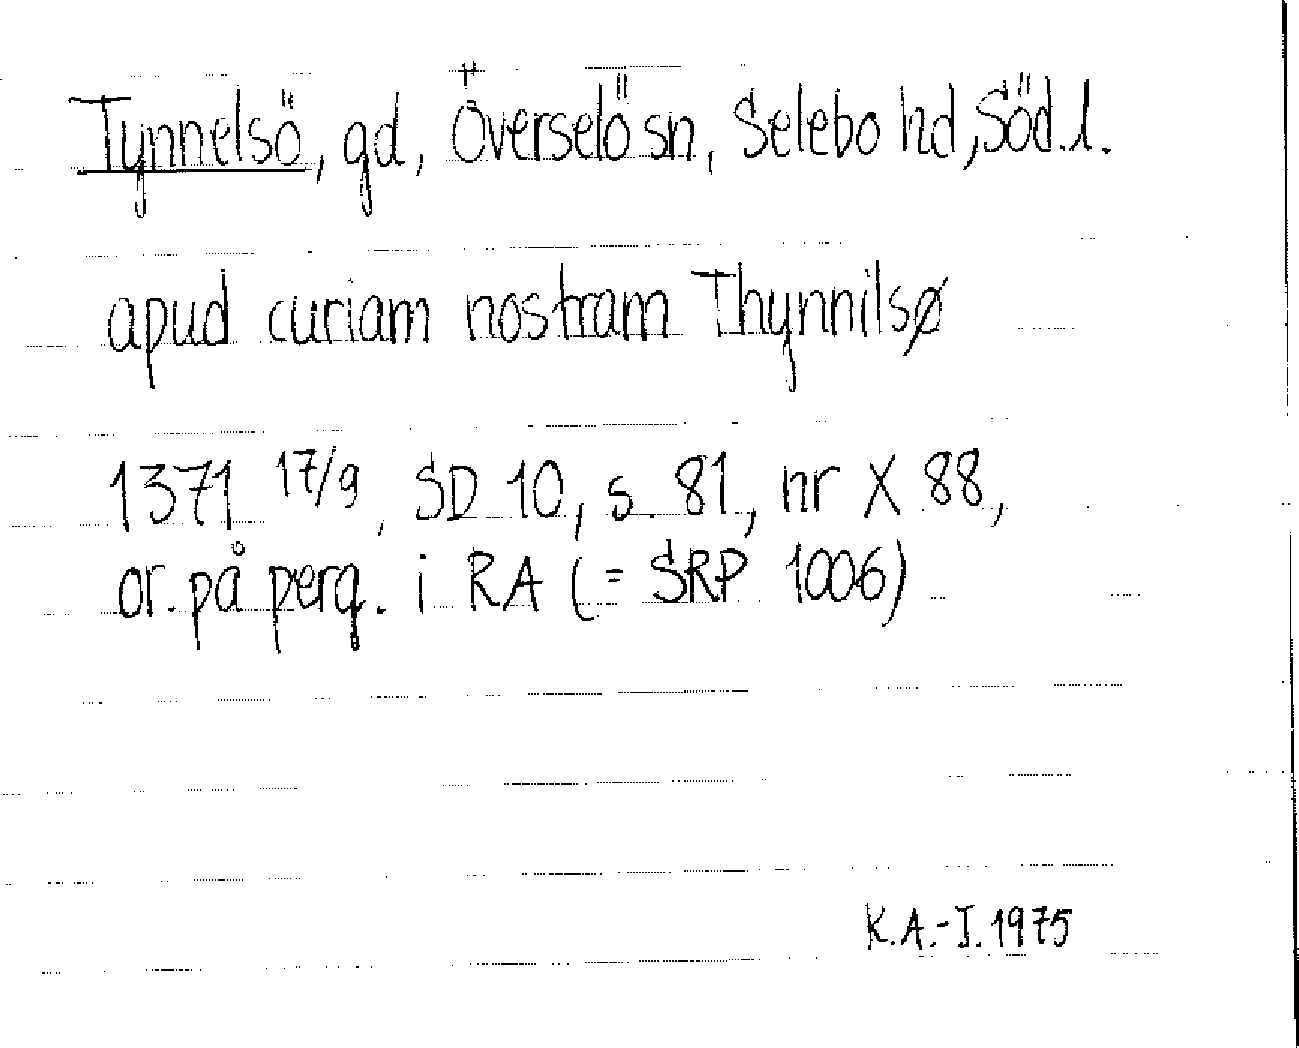 Tynnelsö, gd, Överselö sn, Selebo hd, Söd.l.
apud curiam nostram Thynnilsø
1371 17/9, SD 10, s. 81, nr X 88,
or. på perg. i RA (= SRP 1006)
K.A.-I. 1975